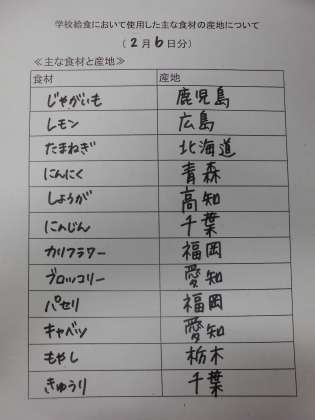 学校給食において使用した主な食材の産地について
(2月6日分)
≪主な食材と産地≫
食材 産地
じゃがいも 鹿児島
レモン 広島
たまねぎ 北海道
にんにく 青森
しょうが 高知
にんじん 千葉
カリフラワー 福岡
ブロッコリー 愛知
パセリ 福岡
キャベツ 愛知
もやし 栃木
きゅうり 千葉